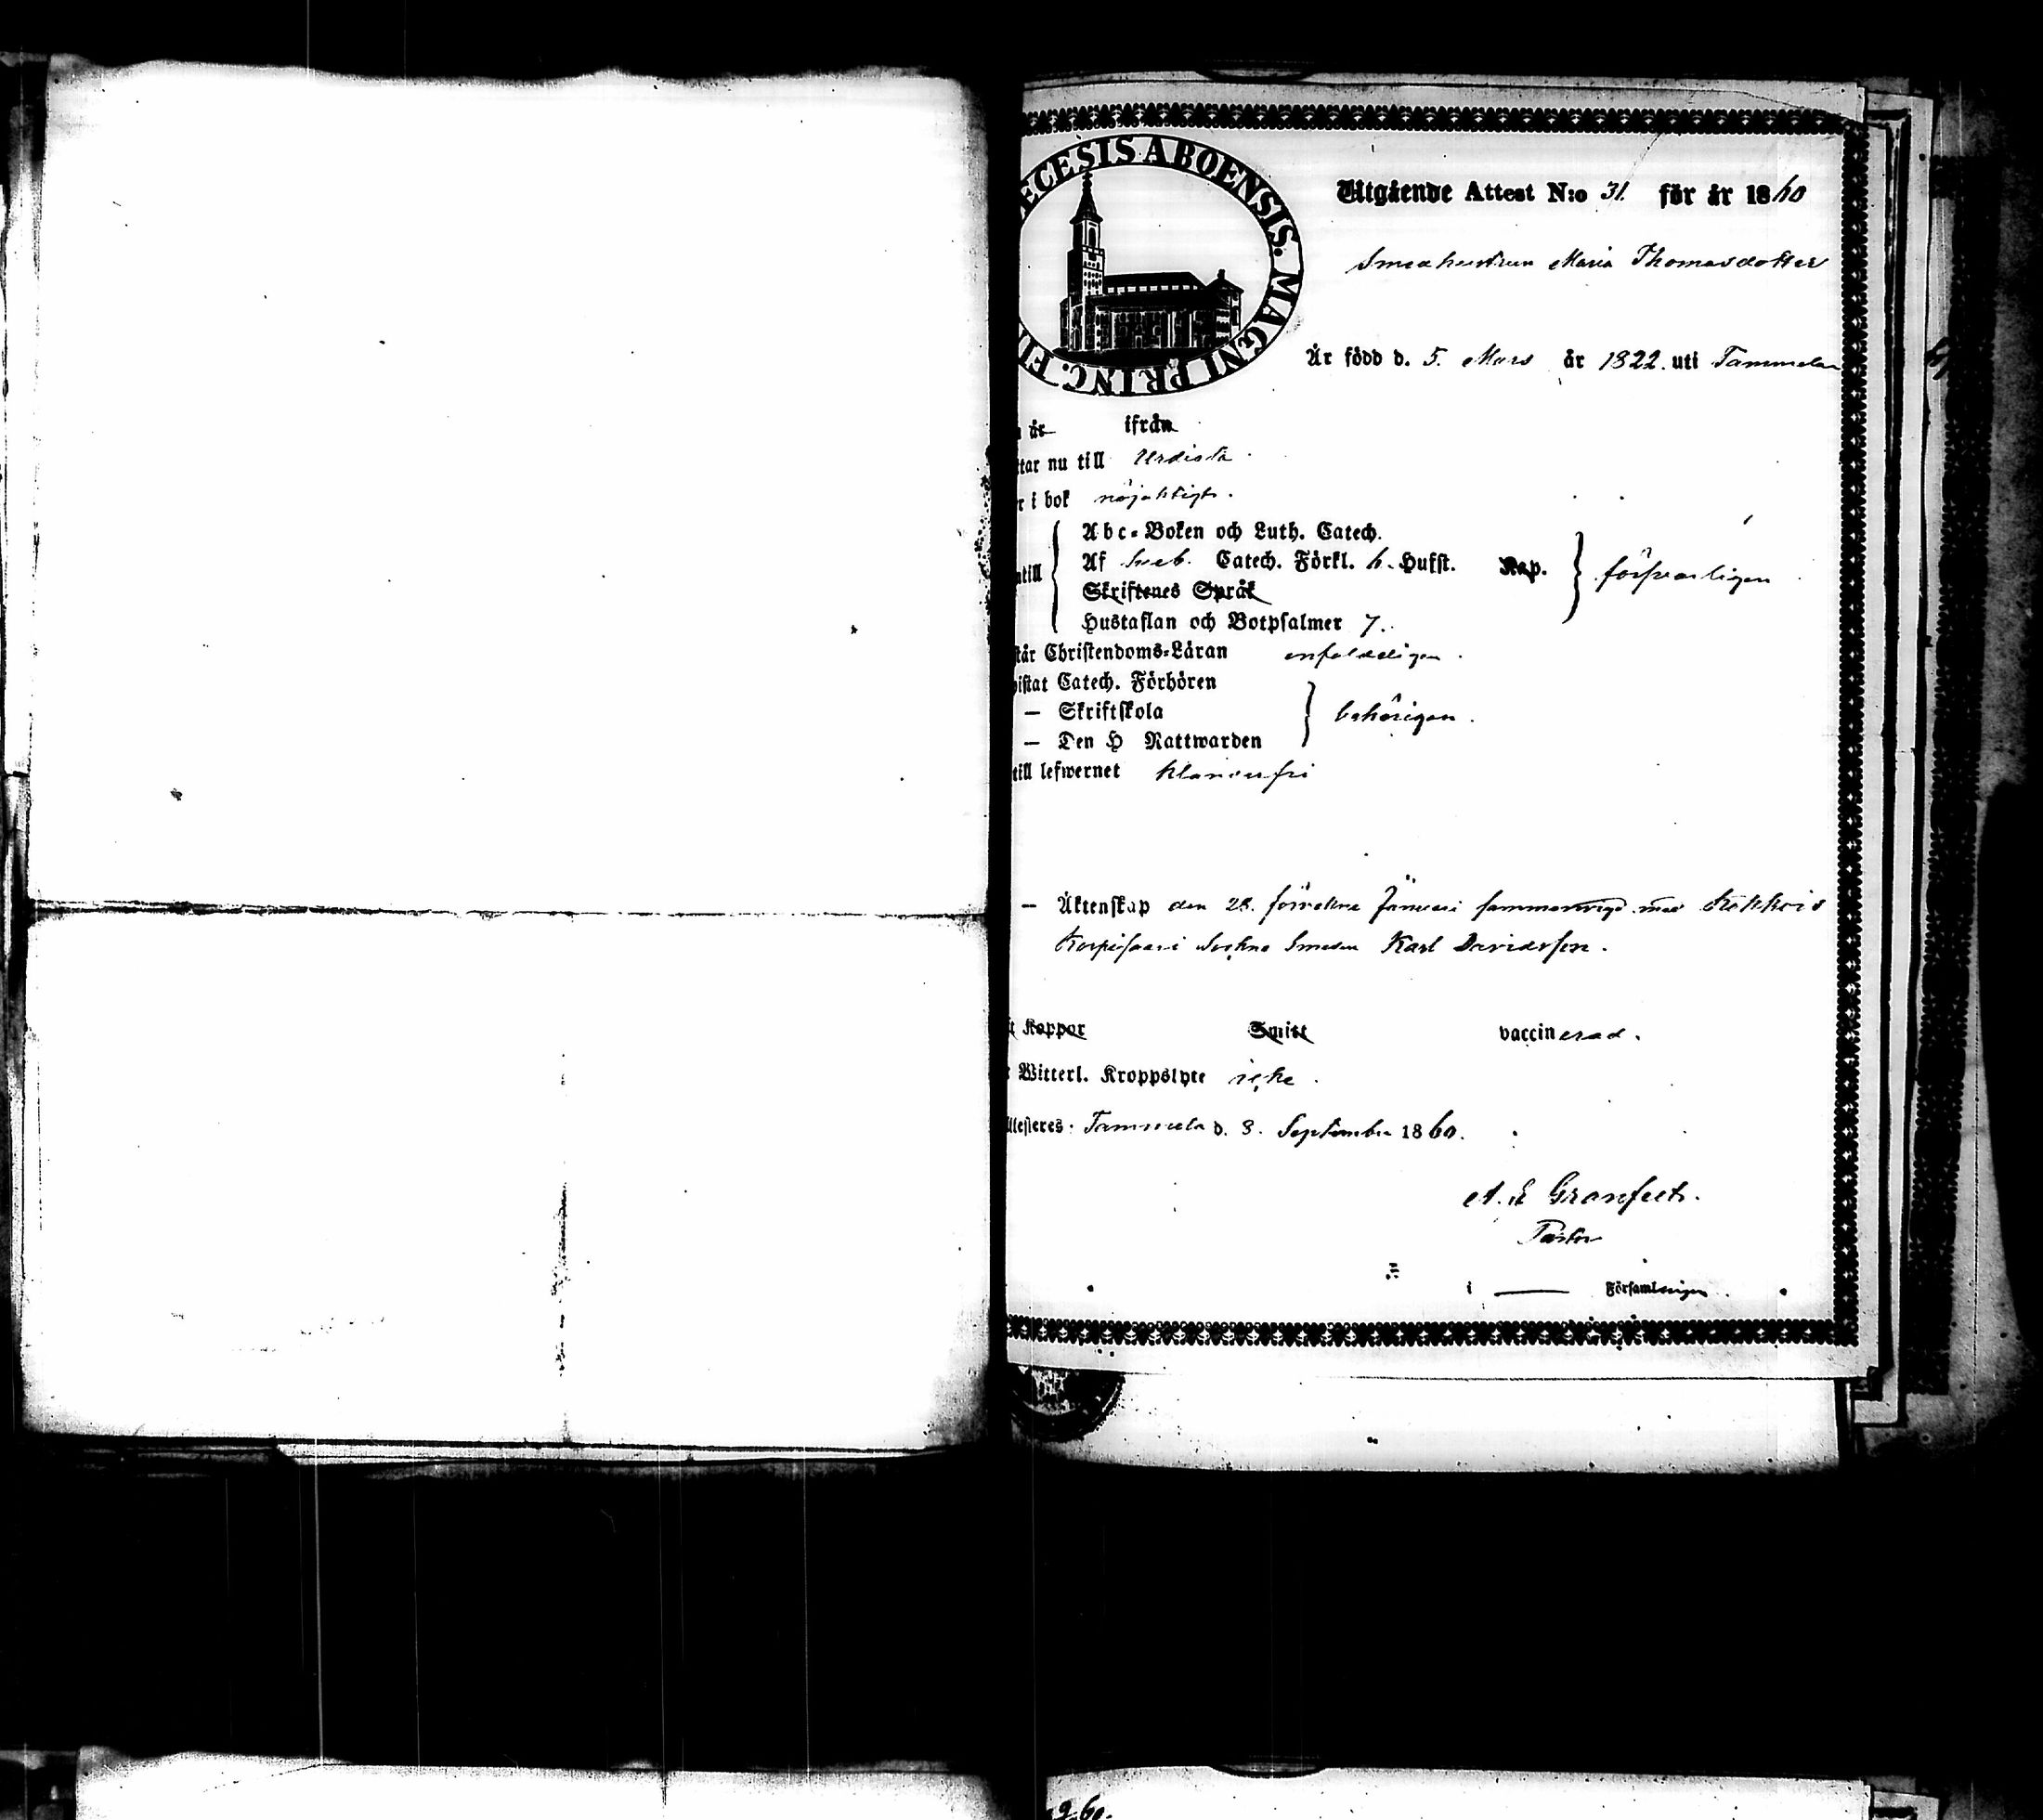 ECESIS ABOENSIS. MAGNI PRINC. FI
Utgående Attest N:o 31 för år 1860
Smedhustrun Maria Thomasdotter
Är född d. 5. Mars år 1822. uti Tammela
år ifrån
tar nu till Urdiala
r i bok nöjaktigt.
Abc-Boken och Luth. Catech.
Af Sveb. Catech. Förkl. 6. Hufst. Kap.
ntill försvarligen
Skriftenes Språk
Hustaflan och Botpsalmer 7.
står Christendoms-Läran enfaldeligen.
vistat Catech. Förhören
— Skriftskola behörigen.
— Den H Nattwarden
till lefwernet klanderfri
— Äktenskap den 28. Januari sammanvigd med
Socknes Smeden Karl Davidsson.
t Koppor Smitt vaccinerad.
Witterl. Kroppslyte icke.
Attesteres. Tammela d. 8. September 1860.
A. E Granfelt.
Pastor
i — Församlingen.
960.